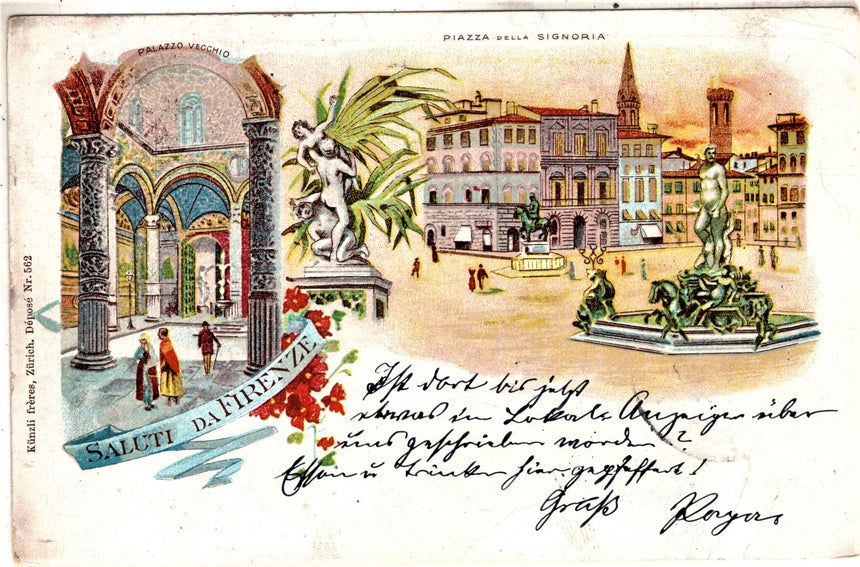 PALAZZO VECCHIO
PIAZZA DELLA SIGNORIA
Künzli frères, Zürich. Déposé Nr. 562
SALUTI DA FIRENZE
Ist dort bis jetzt
etwas im Lokal-Anzeiger über
uns geschrieben worden?
Essen u trinken hier gepfeffert!
Gruß